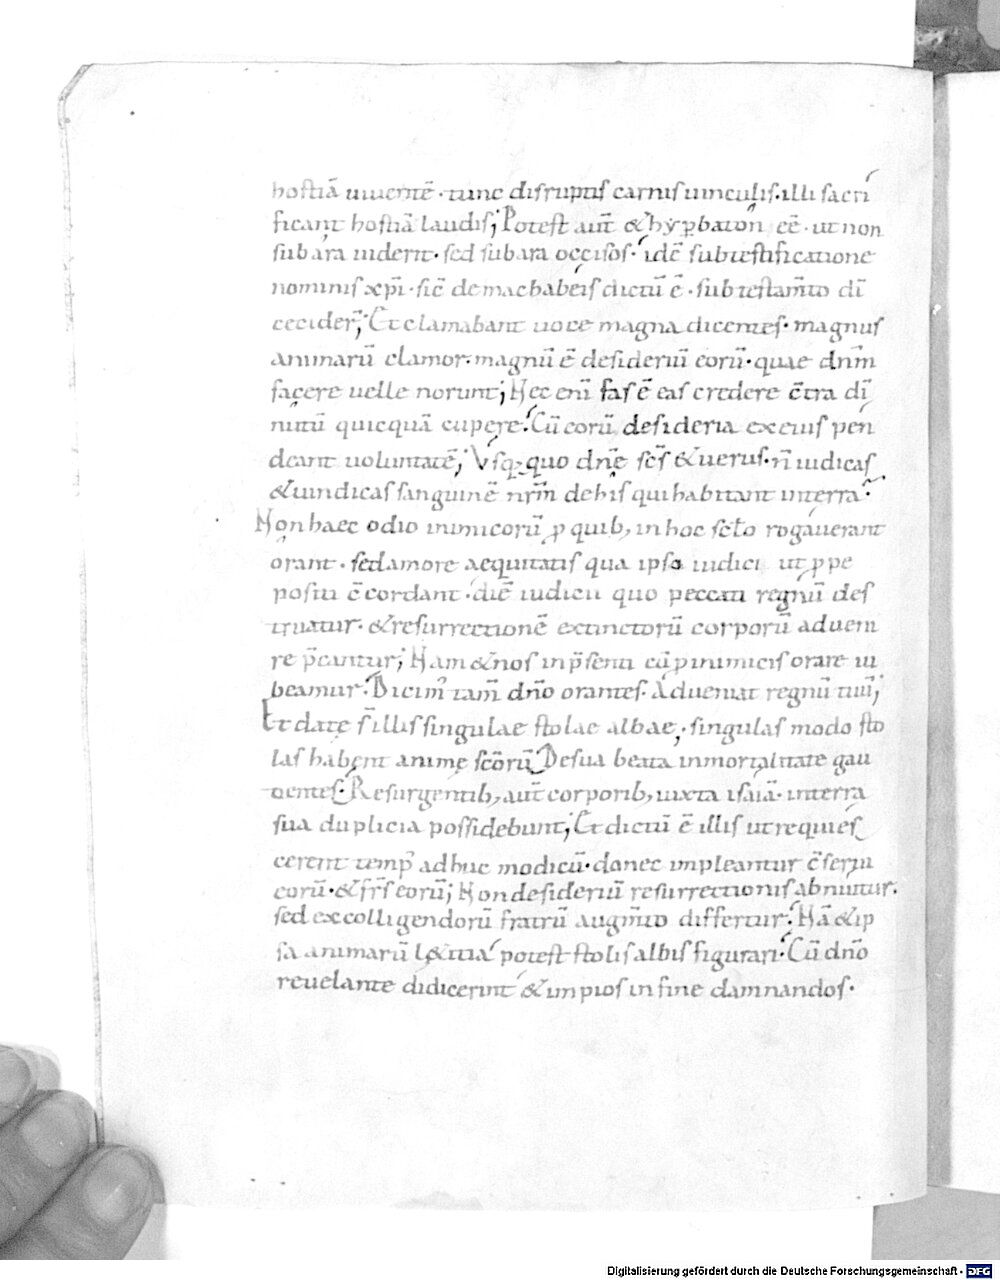 hostiā uiuentē · tunc disruptis carnis uinculis · illi sacri
ficant hostiā laudis; Potest aut̄ & hyꝑbaton eē · ut non
sub ara uiderit · sed sub ara occisos · idē sub testificatione
nominis xp̄i · sic̄ de machabeis dictū ē · sub testam̄to dī
cecider̄; Et clamabant uoce magna dicentes · magnus
animarū clamor · magnū ē desideriū eorū · quae dnm̄
facere uelle norunt; Nec enī fas ē eas credere c̄tra di
uinū quicquā cupere · Cū eorū desideria ex eius pen
deant uoluntatē; Vsq; quo dn̄e sc̄s & uerus · n̄ iudicas
& uindicas sanguinē nr̄m de his qui habitant in terra ·
Non haec odio inimicorū ꝓ quib; in hoc sc̄lo rogauerant
orant · sed amore aequitatis qua ipsa iudici ut ꝓpe
positi c̄cordant · diē iudicii quo peccati regnū des
truatur · & resurrectionē extinctorū corporū adueni
re p̄cantur; Nam & nos in p̄senti cū ꝓ inimicis orare iu
beamur · Dicim᾽ tam̄ dn̄o orantes · Adueniat regnū tuū;
Et date s̄ illis singulae stolae albae; singulas modo sto
las habent anime sc̄orū De sua beata inmortalitate gau
dentes · Resurgentib; aut̄ corporib; iuxta isaiā · in terra
sua duplicia possidebunt; Et dictū ē illis ut requies
cerent temp᾽ adhuc modicū · donec impleantur c̄serui
eorū · & fr̄s eorū; Non desideriū resurrectionis abnuitur ·
sed ex colligendorū fratrū augm̄to differtur · Nā & ip
sa animarū l&itia potest stolis albis figurari · Cū dn̄o
reuelante didicerint & impios in fine damnandos ·
Digitalisierung gefördert durch die Deutsche Forschungsgemeinschaft - DFG